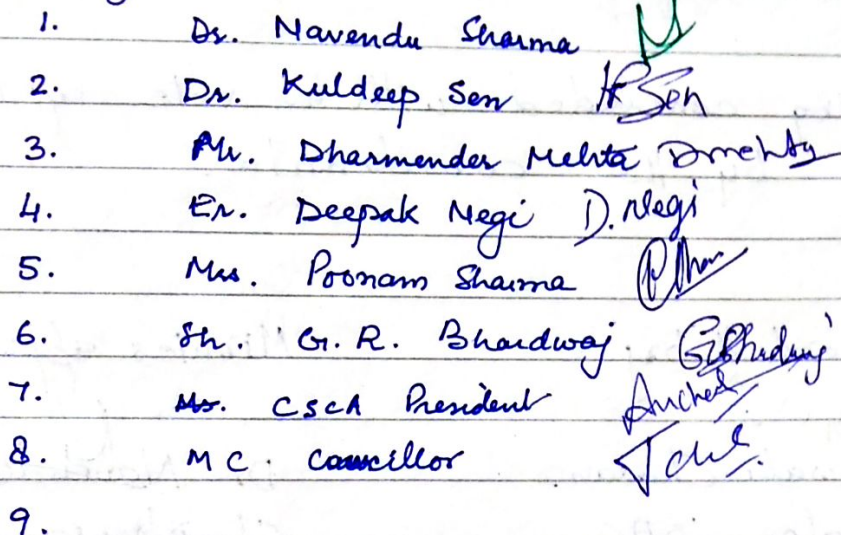 1. Dr. Navendu Sharma
2. Dr. Kuldeep Sen KSen
3. Mr. Dharmender Mehta Dmehta
4. Er. Deepak Negi D. Negi
5. Mrs. Poonam Sharma
6. Sh. G. R. Bhardwaj
7. CSCA President
8. MC. Councillor
9.